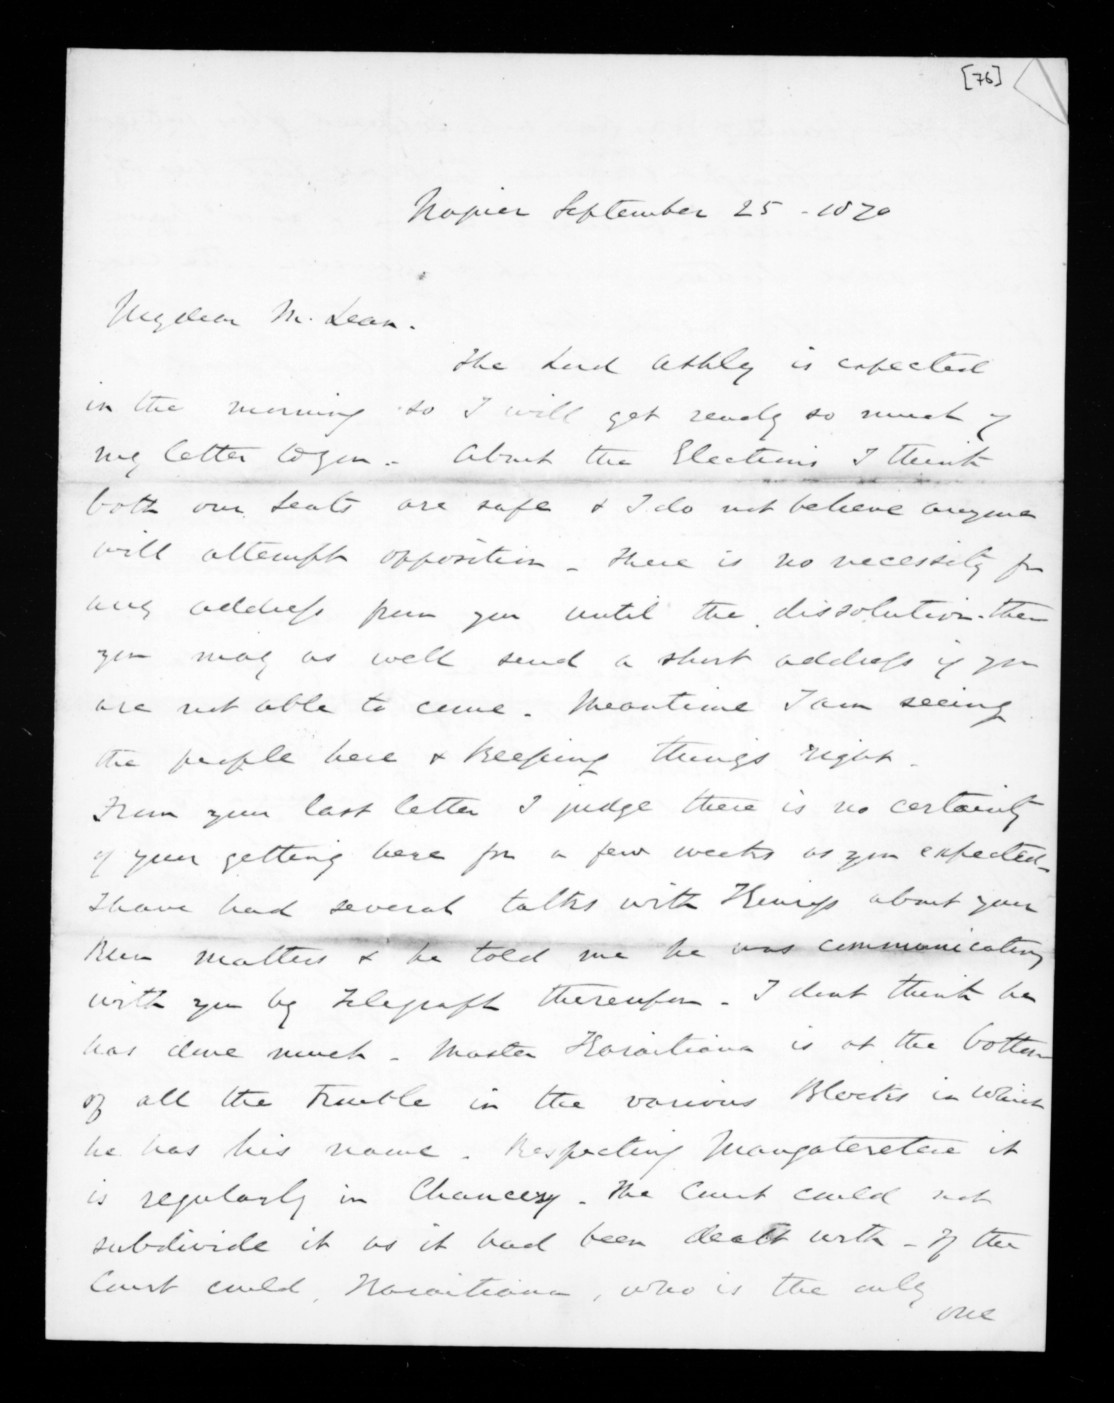 [76]
Napier September 25 - 1870
My dear McLean.
The Lord Ashley is expected
in the morning so I will get ready so much of
my letter to you - About the Elections I think
both our seats are safe & I do not believe anyone
will attempt opposition - There is no necessity for
any address from you until the dissolution. then
you may as well send a short address if you
are not able to come. Meantime I am seeing
the people here & keeping things right.
From your last letter I judge there is no certainty
of your getting here for a few weeks as you expected -
I have had several talks with about your
Run matters & he told me he was communicating
with you by Telegraph thereupon - I dont think he
has done much - Master Karaitiana is at the bottom
of all the trouble in the various Blocks in which
he has his name. Respecting Mangateretere it
is regularly in Chancery - The Court could not
subdivide it as it had been dealt with - If the
Court could, Karaitiana, who is the only
one